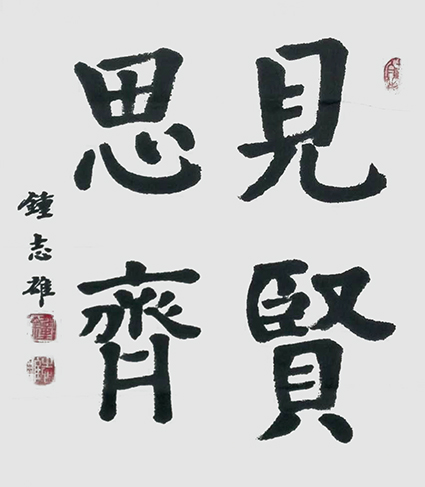 見賢
思齊
鍾志雄